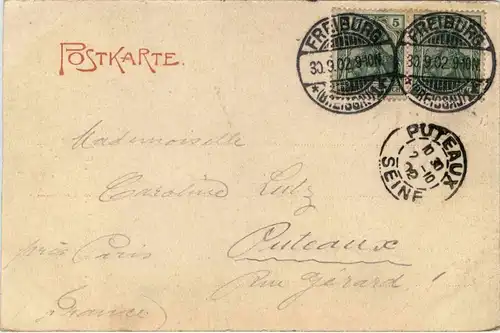 POSTKARTE.
5
FREIBURG
30.9.02.9-10N.
* (BREISGAU) *
FREIBURG
30.9.02.9-10N.
(BREISGAU)
PUTEAUX
10 30
2-10
02
SEINE
Mademoiselle
Caroline Lutz
Puteaux
près Paris
Rue Gérard !
France